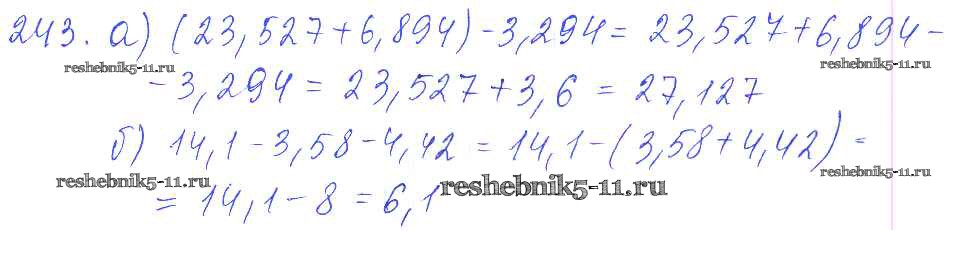 243. а) (23,527+6,894)-3,294= 23,527+6,894-
reshebnik5-11.ru reshebnik5-11.ru
-3,294 = 23,527+3,6 = 27,127
б) 14,1-3,58-4,42 = 14,1-(3,58+4,42) =
reshebnik5-11.ru reshebnik5-11.ru
= 14,1-8 = 6,1 reshebnik5-11.ru